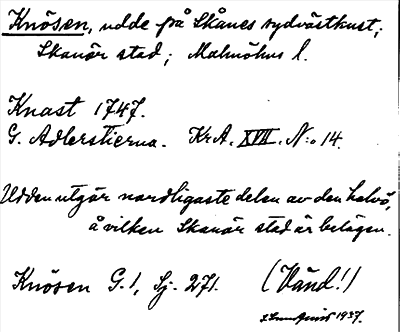 Knösen, udde på Skånes sydvästkust;
Skanör stad; Malmöhus l.
Knast 1747.
G. Adlerstierna. Kr.A. XVII. N:o 14.
Udden utgör nordligaste delen av den halvö,
å vilken Skanör stad är belägen.
Knösen G. 1, Sj. 271. (Vänd!)
1937.